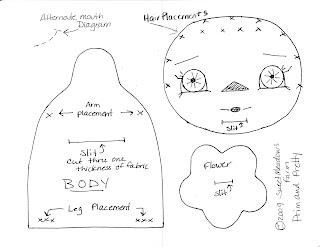 Alternate mouth
Diagram
Hair Placements
Arm
placement
slit
cut thru one
thickness of fabric
BODY
Leg Placement
slit
Flower
slit
©2009 Sweet Meadows
Farm
Prim and Pretty